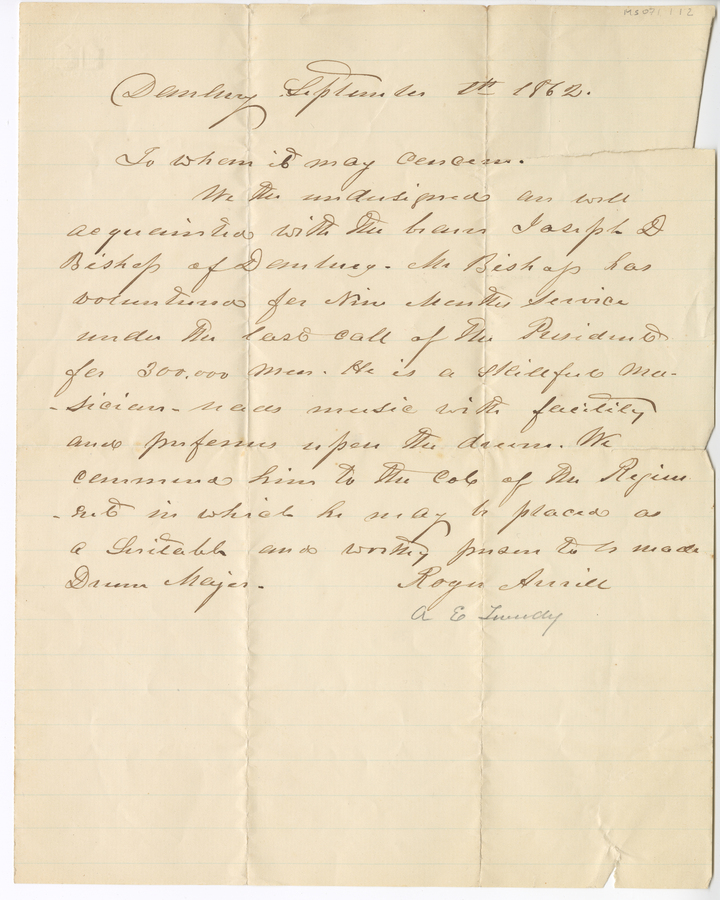 MS 071 1 12
Danbury September 1th 1862.
To whom it may concern.
We the undersigned are well
acquainted with the bearer Joseph D
Bishop of Danbury. Mr Bishop has
volunteered for Nine Months Service
under the last call of the President
for 300,000 men. He is a skillful mu-
-sician - reads music with facility
and performs upon the drum. We
commend him to the Col of the Regim
-ent in which he may be placed as
a Suitable and worthy person to be made
Drum Major.
Roger Averill
A E Tweedy